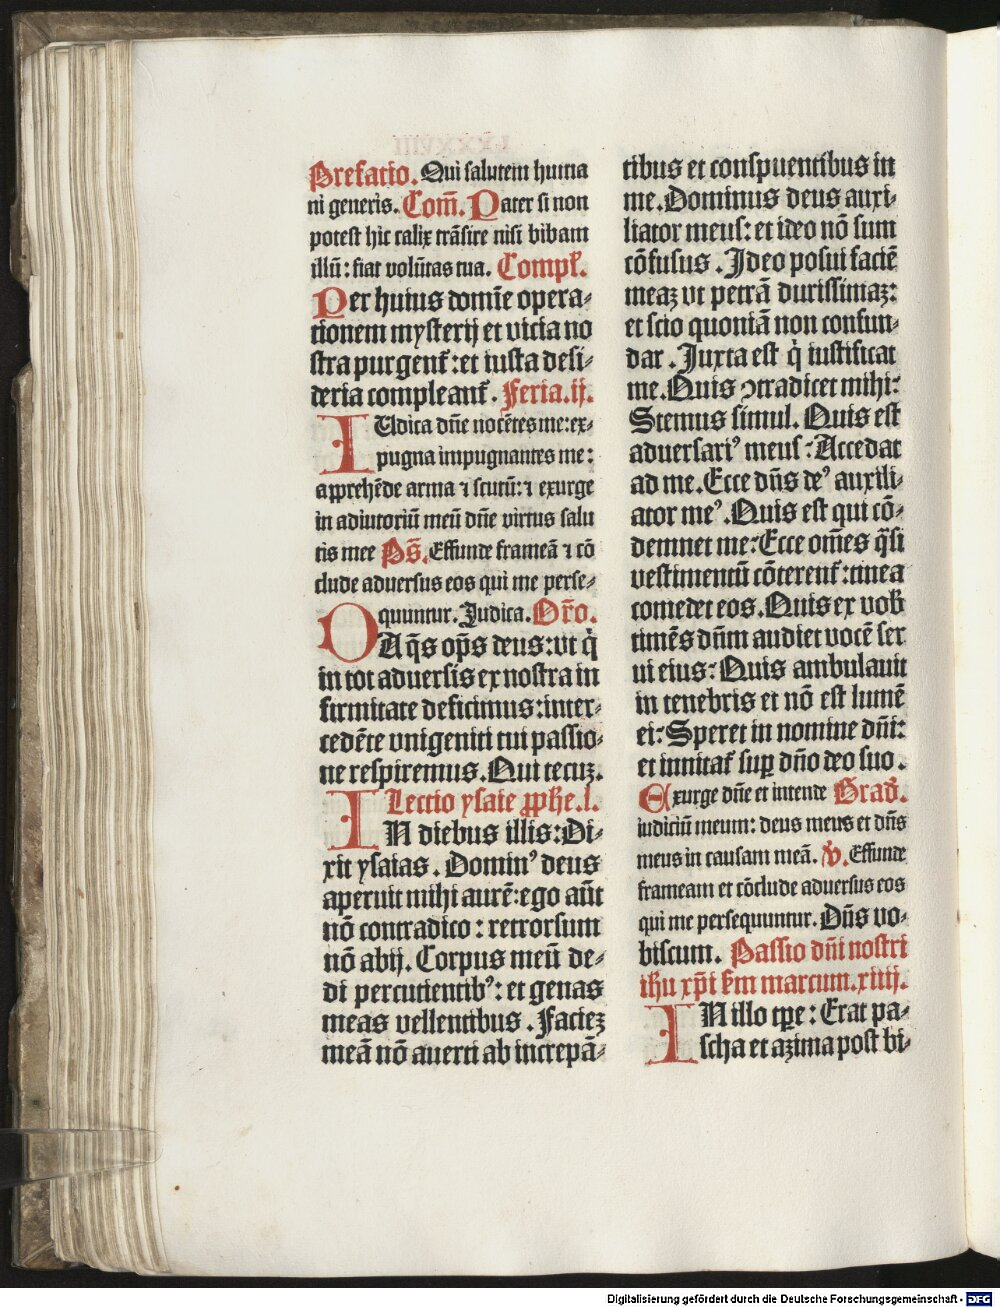 Prefatio. Qui salutem huma
ni generis. Com̄. Pater si non
potest hic calix trāsire nisi bibam
illū: fiat volūtas tua. Compl̄.
Per huius domīe opera⸗
tionem mysterij et vicia no
stra purgent᷑: et iusta desi⸗
deria compleant᷑. Feria.ij.
IUdica dn̄e nocētes me: ex⸗
pugna impugnantes me:
apprehēde arma ⁊ scutū: ⁊ exurge
in adiutoriū meū dn̄e virtus salu
tis mee Ps̄. Effunde frameā ⁊ cō
clude adversus eos qui me perse⸗
quuntur. Iudica. Or̄o.
DA q̄s op̄s deus: vt q̇
in tot adversis ex nostra in
firmitate deficimus: inter⸗
cedēte vnigeniti tui passio⸗
ne respiremus. Qui tecuꝫ.
Lectio ysaie ꝓphe.l.
IN diebus illis: Di⸗
xit ysaias. Dominꝰ deus
aperuit mihi aurē: ego aūt
nō contradico: retrorsum
nō abij. Corpus meū de⸗
di percutientibꝰ: et genas
meas vellentibus. Facieꝫ
meā nō averti ab increpā⸗
tibus et conspuentibus in
me. Dominus deus auxi⸗
liator meus: et ideo nō sum
cōfusus. Ideo posui faciē
meaꝫ vt petrā durissimaꝫ:
et scio quoniā non confun⸗
dar. Juxta est q̇ iustificat
me. Quis ꝯtradicet mihi:
Stemus simul. Quis est
adversariꝰ meus: Accedat
ad me. Ecce dn̄s deꝰ auxili⸗
ator meꝰ. Quis est qui cō⸗
demnet me: Ecce om̄es q̄si
vestimentū cōterent᷑: tinea
comedet eos. Quis ex vob̄
timēs dn̄m audiet vocē ser
ui eius: Quis ambulauit
in tenebris et nō est lumē
ei: Speret in nomine dn̄i:
et innitat᷑ suꝑ dn̄o deo suo.
Exurge dn̄e et intende Grad̄.
iudiciū meum: deus meus et dn̄s
meus in causam meā. ℣. Effunde
frameam et cōclude adversus eos
qui me persequuntur. Dn̄s vo⸗
biscum. Passio dn̄i nostri
ih̄u xp̄i ẜm marcum.xiiij.
IN illo tꝑe: Erat pa⸗
scha et azima post bi⸗
Digitalisierung gefördert durch die Deutsche Forschungsgemeinschaft - DFG